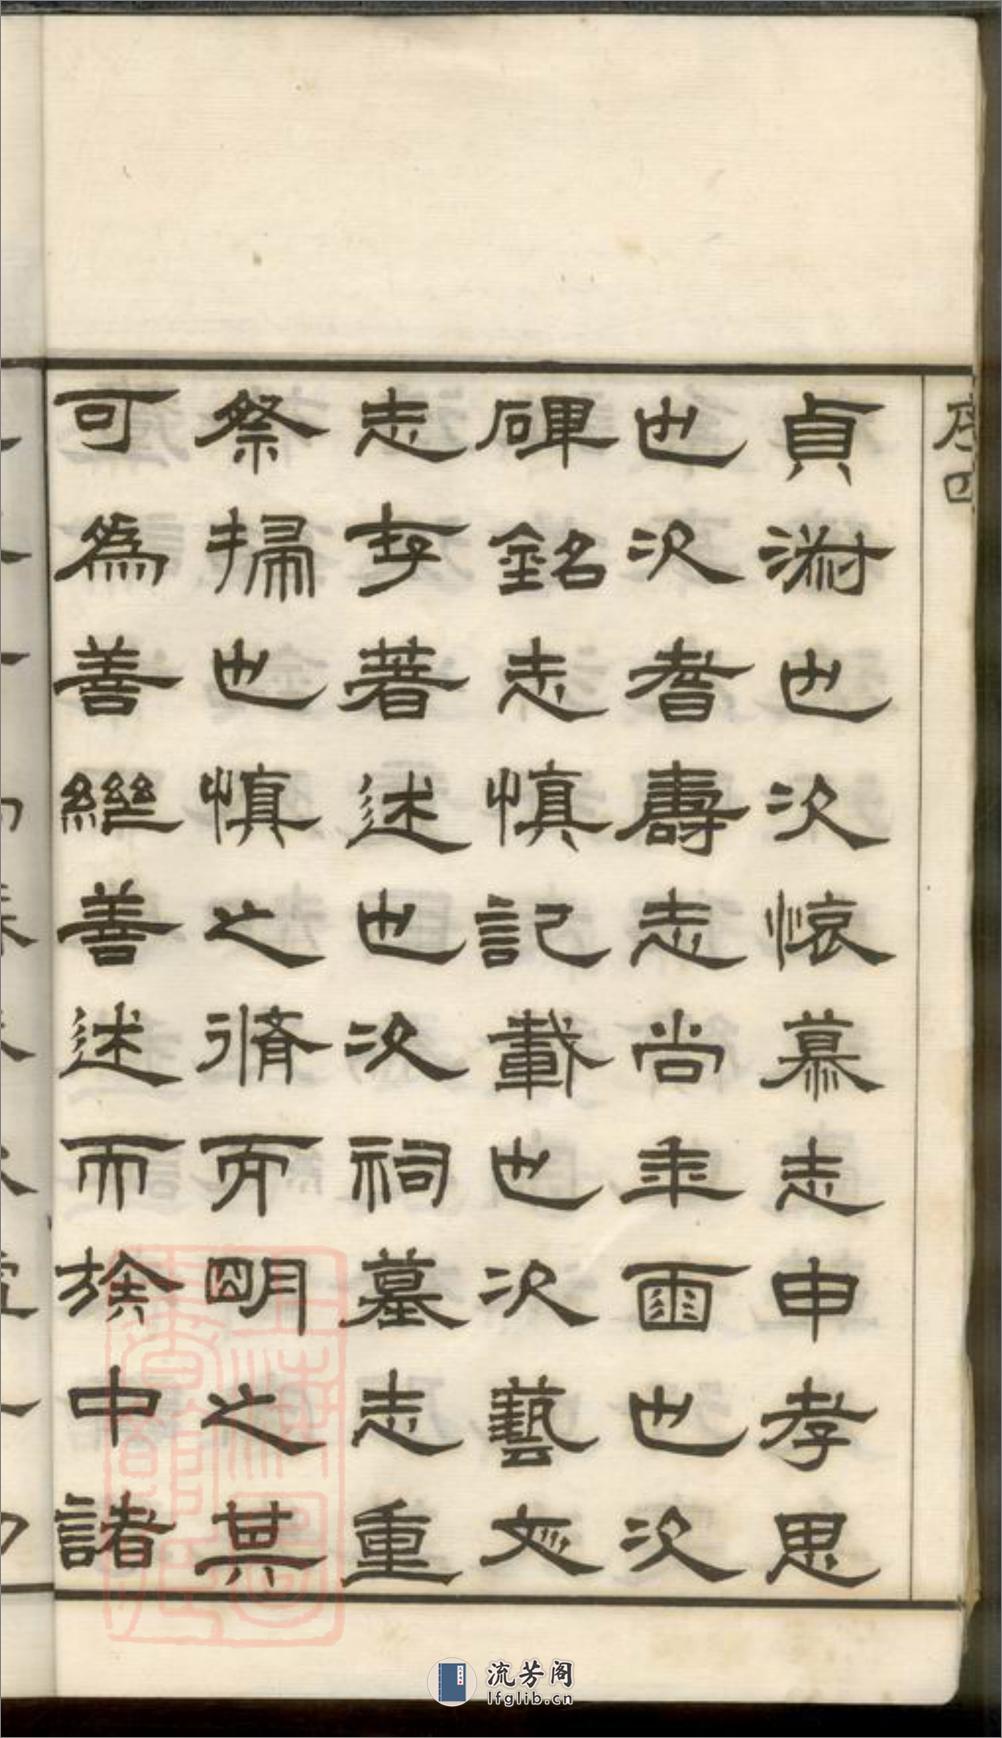 序四
貞淑也次懷慕志申孝思
也次耆壽志尚年齒也次
碑銘志慎記載也次藝文
志存著述也次祠墓志重
祭掃也慎之脩而明之其
可爲善繼善述而於中諸
上海圖書館藏
流芳阁
lfglib.cn